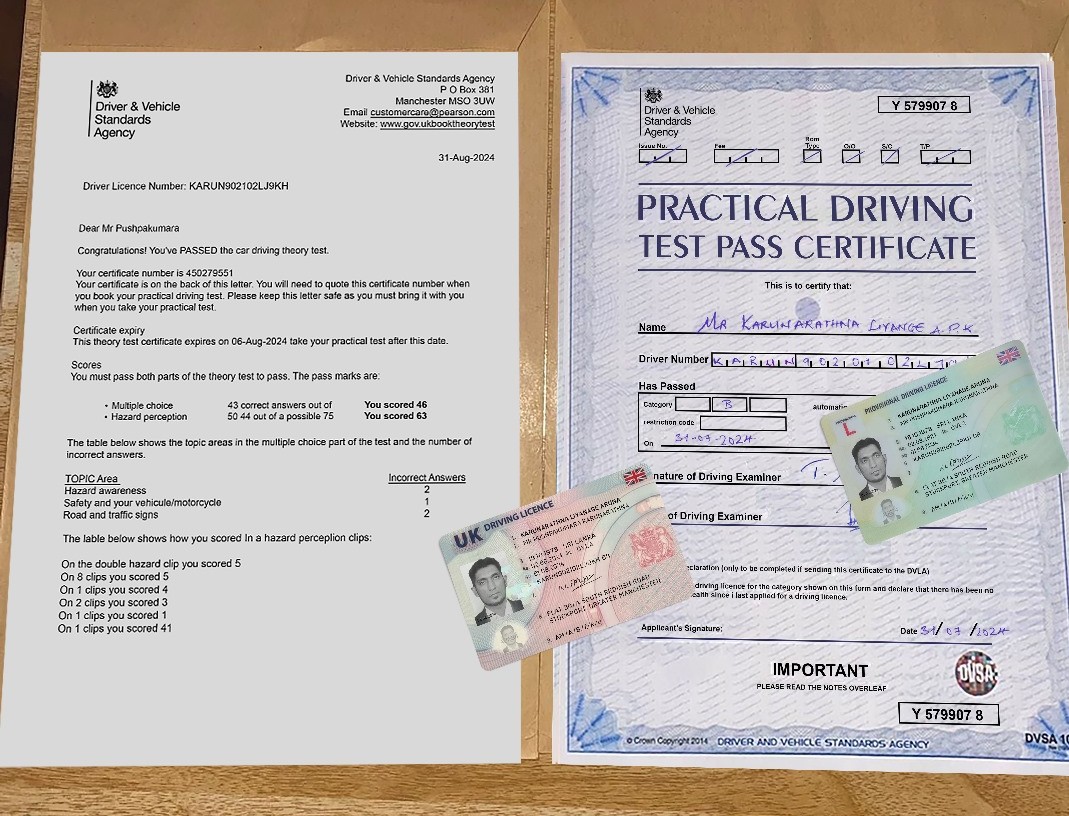 Driver & Vehicle
Standards
Agency
Driver & Vehicle Standards Agency
P O Box 381
Manchester MSO 3UW
Email customercare@pearson.com
Website: www.gov.ukbooktheorytest
31-Aug-2024
Driver Licence Number: KARUN902102LJ9KH
Dear Mr Pushpakumara
Congratulations! You've PASSED the car driving theory test.
Your certificate number is 450279551
Your certificate is on the back of this letter. You will need to quote this certificate number when
you book your practical driving test. Please keep this letter safe as you must bring it with you
when you take your practical test.
Certificate expiry
This theory test certificate expires on 06-Aug-2024 take your practical test after this date.
Scores
You must pass both parts of the theory test to pass. The pass marks are:
• Multiple choice 43 correct answers out of You scored 46
• Hazard perception 50 44 out of a possible 75 You scored 63
The table below shows the topic areas in the multiple choice part of the test and the number of
incorrect answers.
TOPIC Area Incorrect Answers
Hazard awareness 2
Safety and your vehicule/motorcycle 1
Road and traffic signs 2
The lable below shows how you scored In a hazard perceplion clips:
On the double hazard clip you scored 5
On 8 clips you scored 5
On 1 clips you scored 4
On 2 clips you scored 3
On 1 clips you scored 1
On 1 clips you scored 41
Driver & Vehicle
Standards
Agency
Y 579907 8
Issue No. Fee Rom Type O/O S/C T/P
PRACTICAL DRIVING
TEST PASS CERTIFICATE
This is to certify that:
Name MR KARUNARATHNA LIYANGE A.P.K
Driver Number KARUN90207 02LJ
Has Passed
Category B automatic
restriction code
On 31-07-2024
nature of Driving Examiner
of Driving Examiner
eclaration (only to be completed if sending this certificate to the DVLA)
driving licence for the category shown on this form and declare that there has been no
ealth since i last applied for a driving licence.
Applicant's Signature: Date 31/07/2024
IMPORTANT
PLEASE READ THE NOTES OVERLEAF
DVSA
Y 579907 8
© Crown Copyright 2014 DRIVER AND VEHICLE STANDARDS AGENCY
DVSA 10
UK DRIVING LICENCE
1. KARUNARATHNA LIYANAGE ARUNA
SRI LANKA
FLAT 30/A SOUTH REDDISH ROAD
STOCKPORT, GREATER MANCHESTER
PROVISIONAL DRIVING LICENCE
L
KARUNARATHNA LIYANAGE ARUNA
SRI LANKA
SOUTH REDDISH ROAD
STOCKPORT, GREATER MANCHESTER